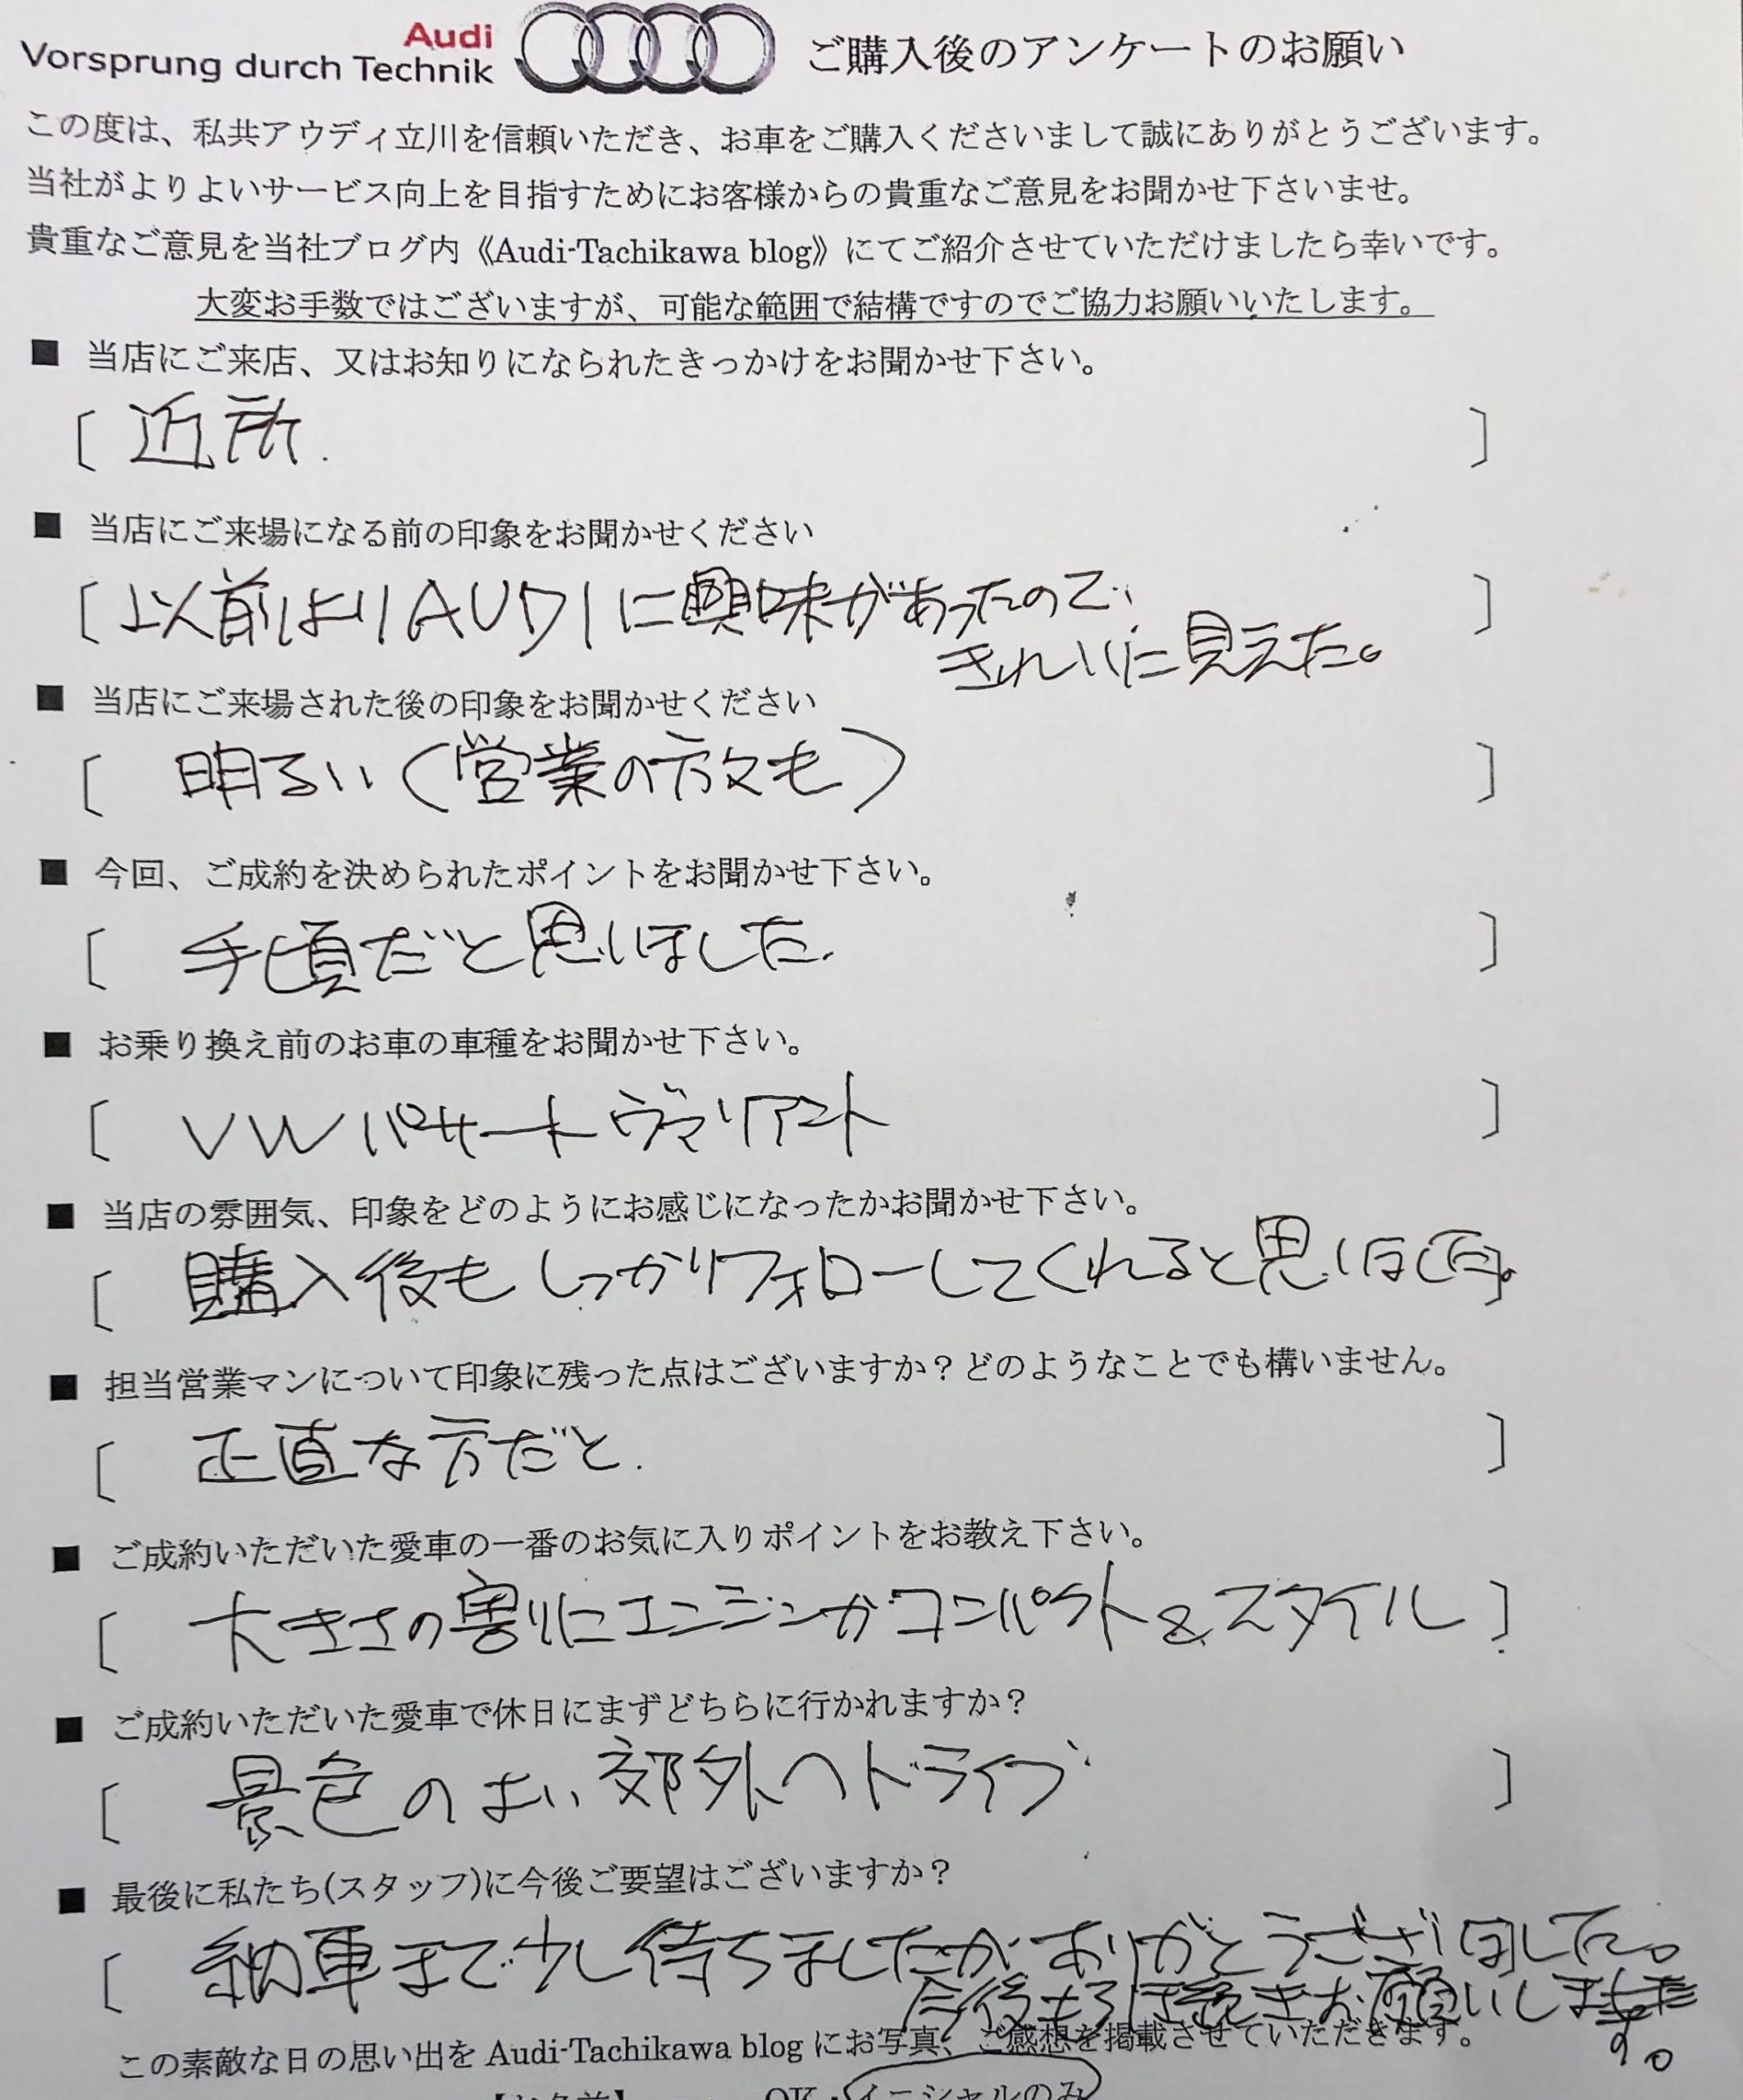 Audi
Vorsprung durch Technik
ご購入後のアンケートのお願い
この度は、私共アウディ立川を信頼いただき、お車をご購入くださいまして誠にありがとうございます。
当社がよりよいサービス向上を目指すためにお客様からの貴重なご意見をお聞かせ下さいませ。
貴重なご意見を当社ブログ内《Audi-Tachikawa blog》にてご紹介させていただけましたら幸いです。
大変お手数ではございますが、可能な範囲で結構ですのでご協力お願いいたします。
■ 当店にご来店、又はお知りになられたきっかけをお聞かせ下さい。
〔 近所. 〕
■ 当店にご来場になる前の印象をお聞かせください
〔 以前よりAUDIに興味があったので、 〕
きれいに見えた。
■ 当店にご来場された後の印象をお聞かせください
〔 明るい(営業の方々も) 〕
■ 今回、ご成約を決められたポイントをお聞かせ下さい。
〔 手頃だと思いました. 〕
■ お乗り換え前のお車の車種をお聞かせ下さい。
〔 VWパサートヴァリアント 〕
■ 当店の雰囲気、印象をどのようにお感じになったかお聞かせ下さい。
〔 購入後もしっかりフォローしてくれると思いました。〕
■ 担当営業マンについて印象に残った点はございますか？どのようなことでも構いません。
〔 正直な方だと. 〕
■ ご成約いただいた愛車の一番のお気に入りポイントをお教え下さい。
〔 大きさの割りにエンジンがコンパクト&スタイル 〕
■ ご成約いただいた愛車で休日にまずどちらに行かれますか？
〔 景色のよい郊外へドライブ 〕
■ 最後に私たち(スタッフ)に今後ご要望はございますか？
〔 納車まで少し待ちましたが、ありがとうございました。
今後も引き続きお願いします。
この素敵な日の思い出を Audi-Tachikawa blog にお写真、ご感想を掲載させていただきます。
【お名前】 OK・イニシャルのみ